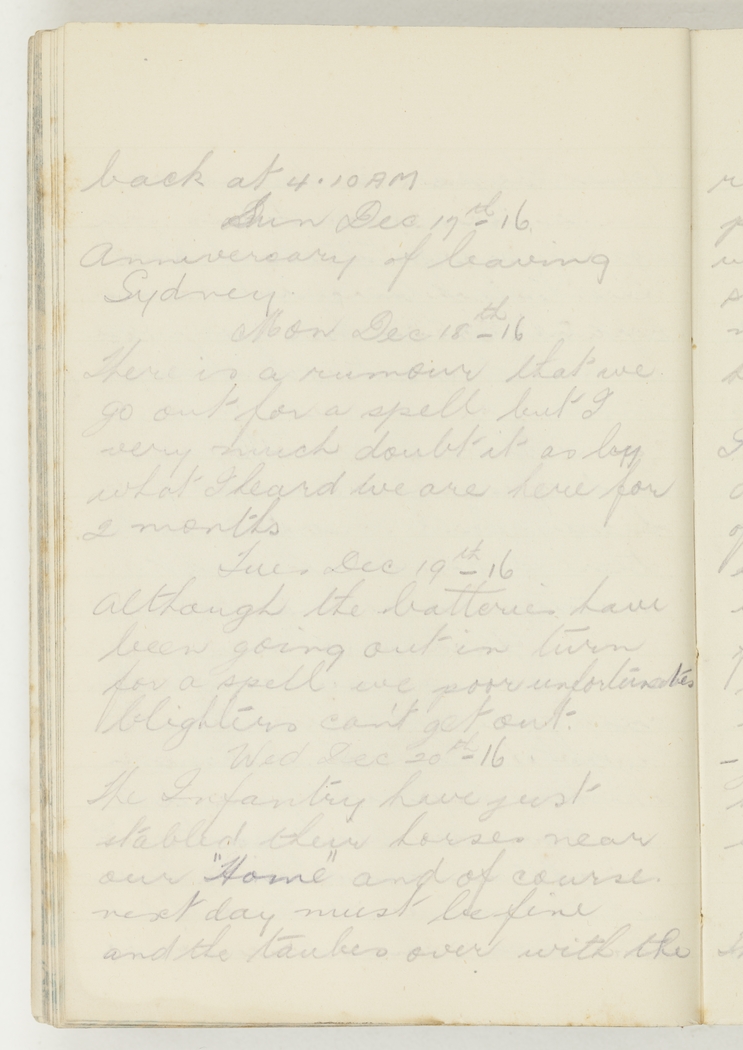 back at 4.10 AM
Sun Dec 17th 16
Anniversary of leaving
Sydney.
Mon Dec 18th 16
There is a rumour that we
go out for a spell but I
very much doubt it as by
what I heard we are here for
2 months
Tues Dec 19th 16
Although the batteries have
been going out in turn
for a spell we poor unfortunates
blighters can't get out.
Wed Dec 20th 16
The Infantry have just
stabled their horses near
our "Home" and of course
next day must be fine
and the taubes over with the